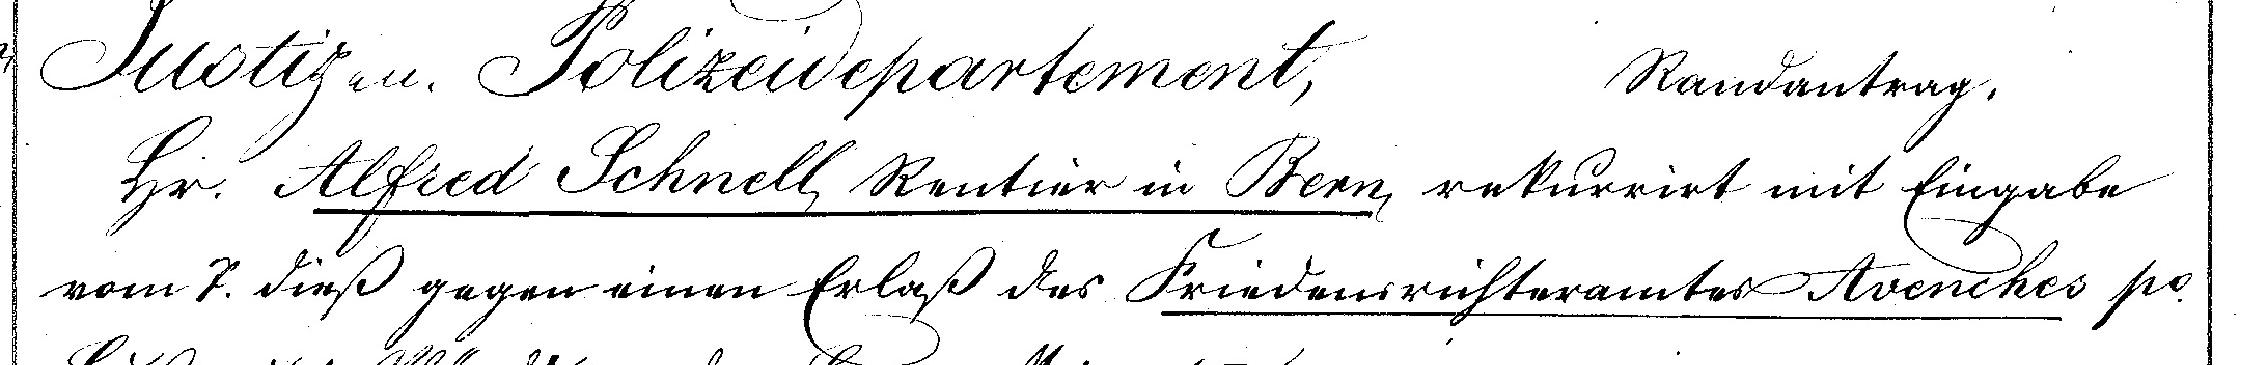 Justiz u. Polizeidepartement, Randantrag.
Hr. Alfred Schnell, Rentier in Bern, rekurrirt mit Eingabe
vom 7. dieß gegen einen Erlaß des Friedensrichteramtes Avenches po.